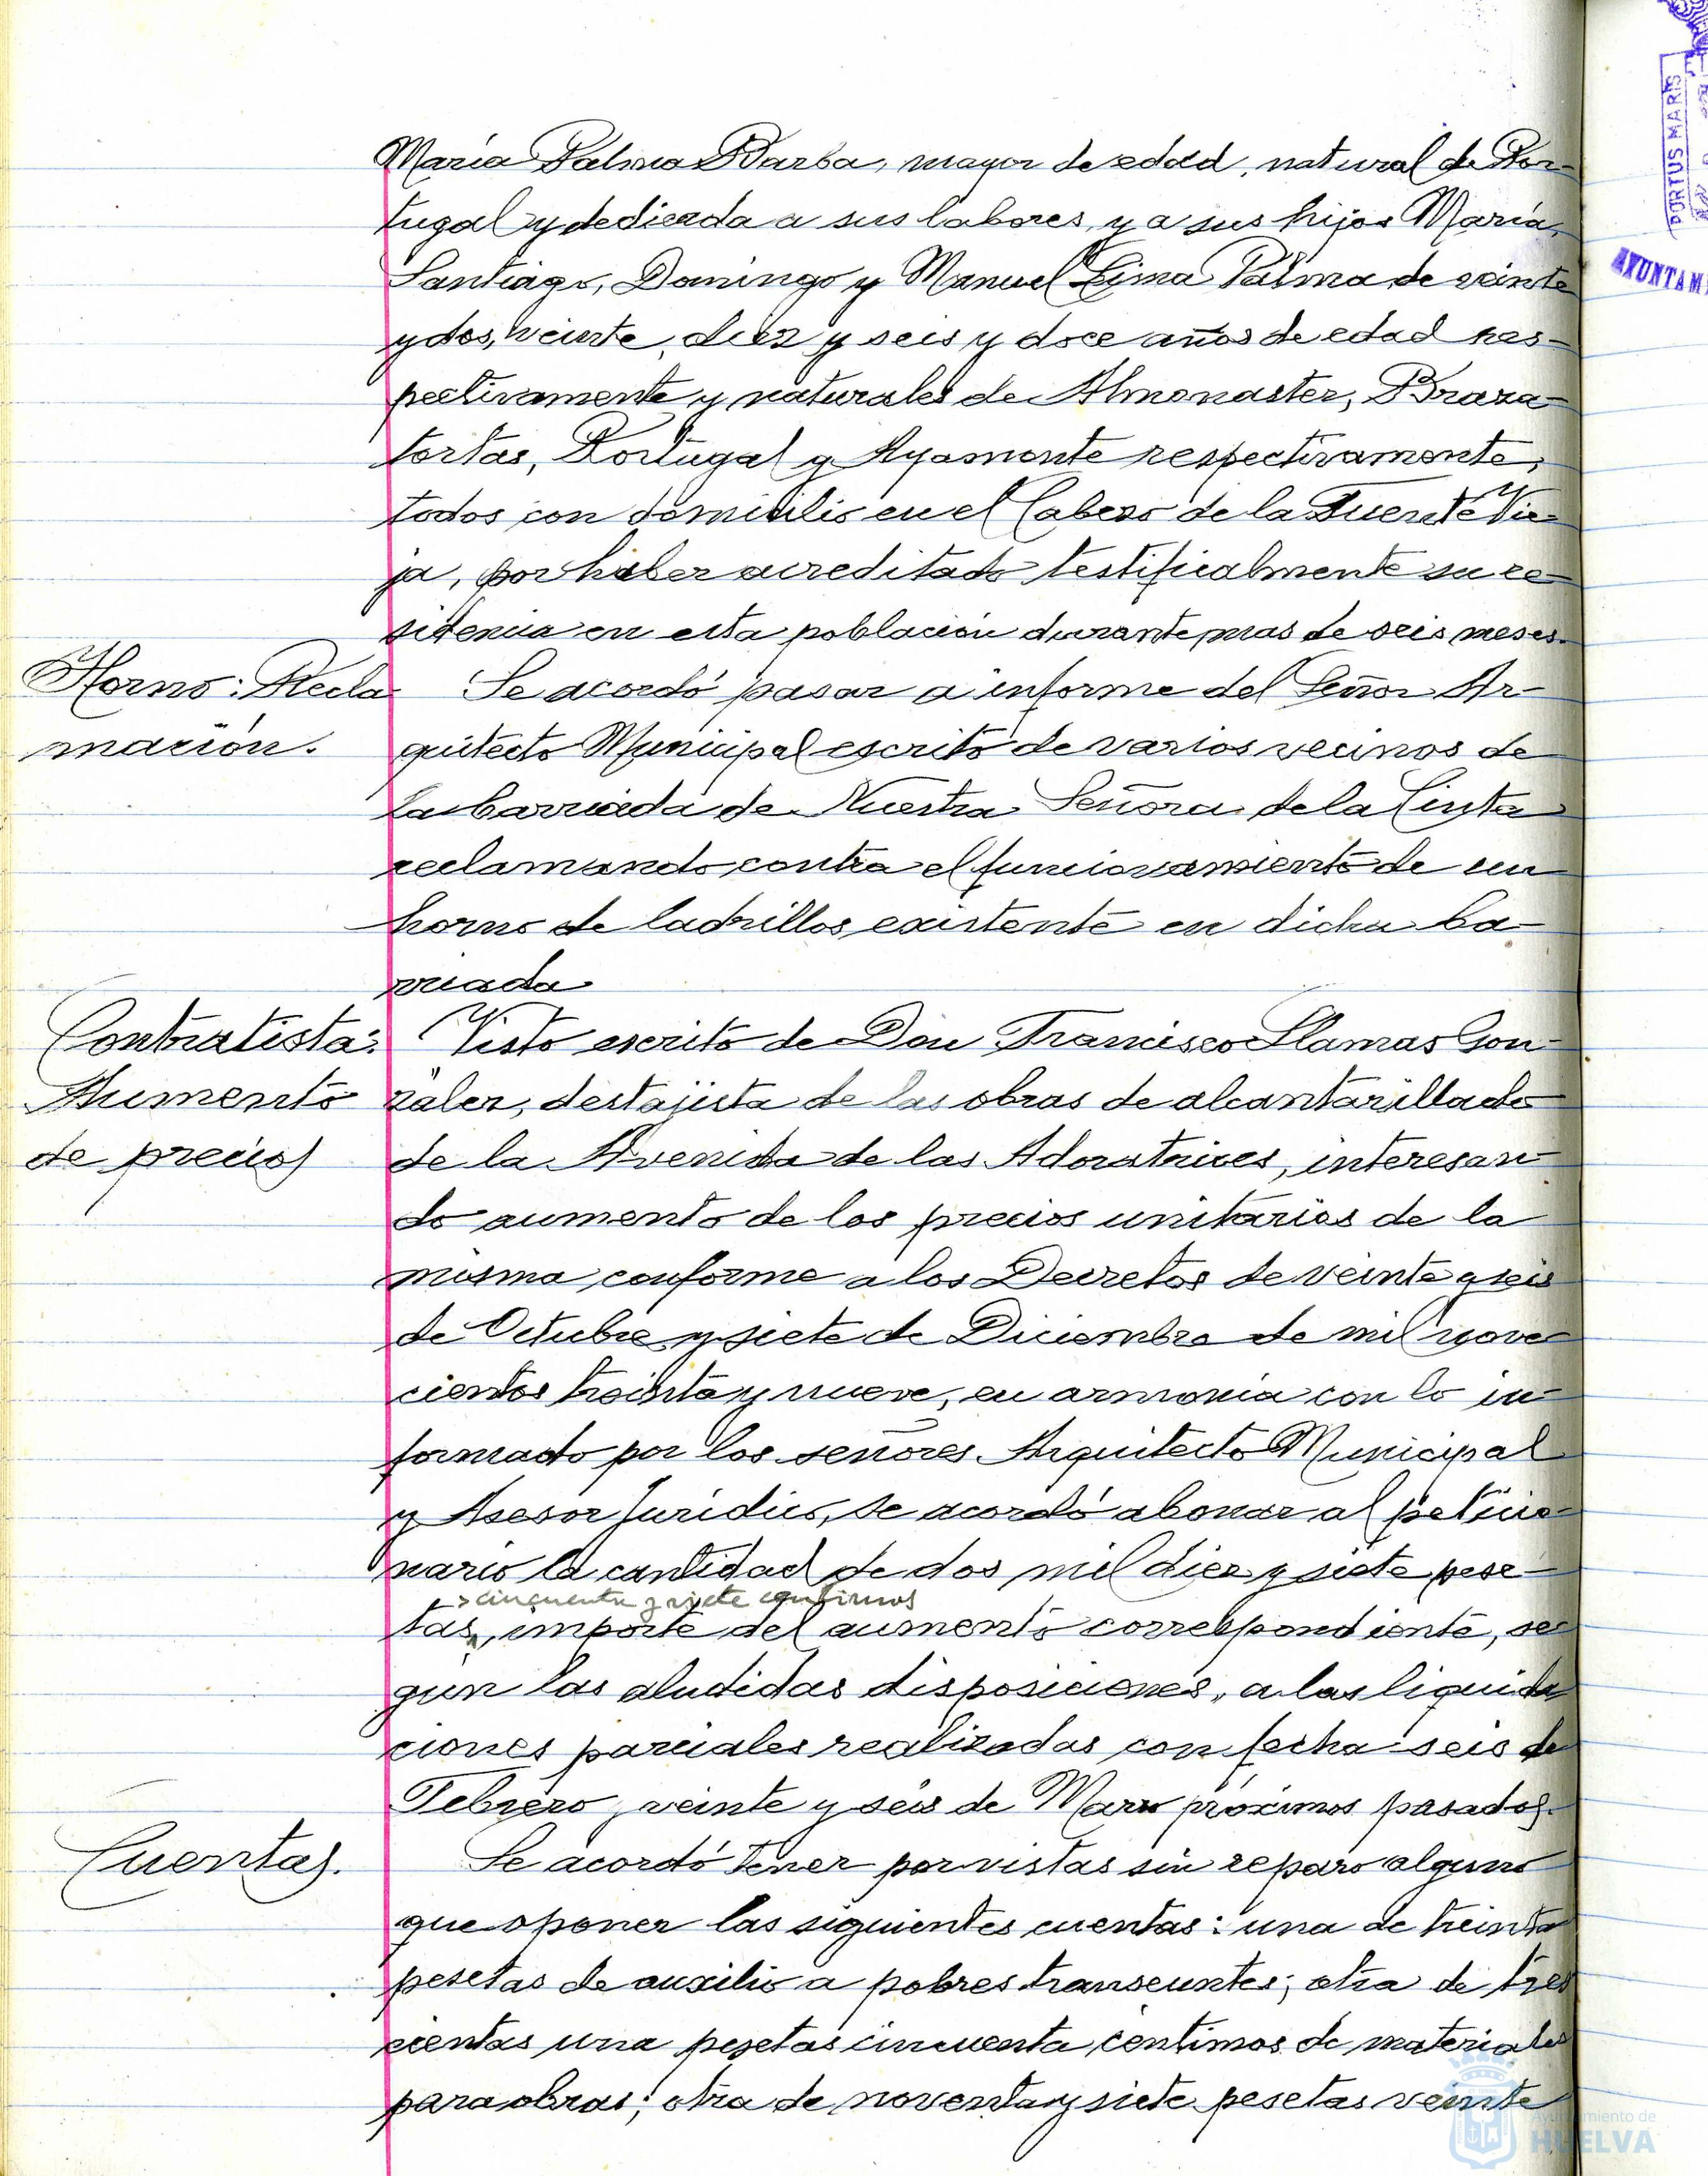 María Palma Barba, mayor de edad, natural de Por-
tugal y dedicada a sus labores, y a sus hijos María,
Santiago, Domingo y Manuel Lima Palma de veinte
y dos, veinte, diez y seis y doce años de edad res-
pectivamente y naturales de Almonaster, Braza-
tortas, Portugal y Ayamonte respectivamente,
todos con domicilio en el Cabezo de la Fuente Vie-
ja, por haber acreditado testificalmente su re-
sidencia en esta población durante mas de seis meses.
Horno: Recla-
mación.
Se acordó pasar a informe del Señor Ar-
quitecto Municipal escrito de varios vecinos de
la barriada de Nuestra Señora de la Cinta
reclamando contra el funcionamiento de un
horno de ladrillos existente en dicha ba-
rriada
Contratista:
Aumento
de precios
Visto escrito de Don Francisco Llamas Gon-
zález, destajista de las obras de alcantarillado
de la Avenida de las Adoratrices, interesan-
do aumento de los precios unitarios de la
misma conforme a los Decretos de veinte y seis
de Octubre y siete de Diciembre de mil nove-
cientos treinta y nueve, en armonia con lo in-
formado por los señores Arquitecto Municipal
y Asesor Juridico, se acordó abonar al peticio-
nario la cantidad de dos mil diez y siete pese-
cincuenta y siete centimos
tas, importe del aumento correspondiente, se-
gún las aludidas disposiciones, a las liquida-
ciones parciales realizadas con fecha seis de
Febrero, veinte y seis de Marzo próximos pasados.
Cuentas.
Se acordó tener por vistas sin reparo alguno
que oponer las siguientes cuentas: una de treinta
pesetas de auxilio a pobres transeuntes; otra de tres
cientas una pesetas cincuenta centimos de materiales
para obras; otra de noventa y siete pesetas veinte
PORTUS MARIS
AYUNTAM
Ayuntamiento de
HUELVA